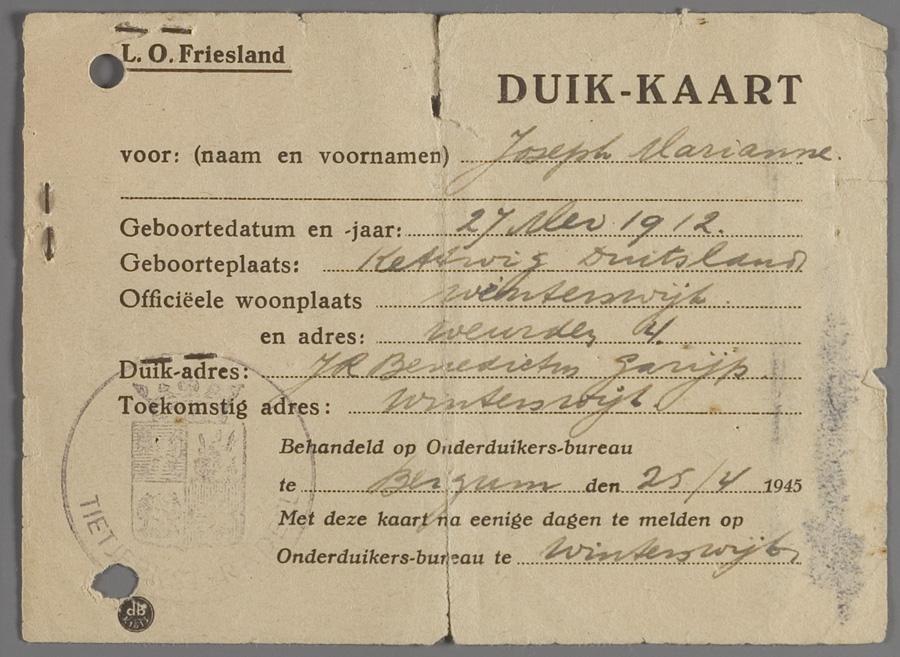 L. O. Friesland
DUIK-KAART
voor: (naam en voornamen) Joseph Marianne.
Geboortedatum en -jaar: 27 Mei 1912.
Geboorteplaats: Kettwig Duitsland
Officiëele woonplaats Winterswijk.
en adres: Weurden 4.
Duik-adres: JR Benedictus Garijp.
Toekomstig adres: Winterswijk.
Behandeld op Onderduikers-bureau
te Bergum den 25/4 1945
Met deze kaart na eenige dagen te melden op
Onderduikers-bureau te Winterswijk